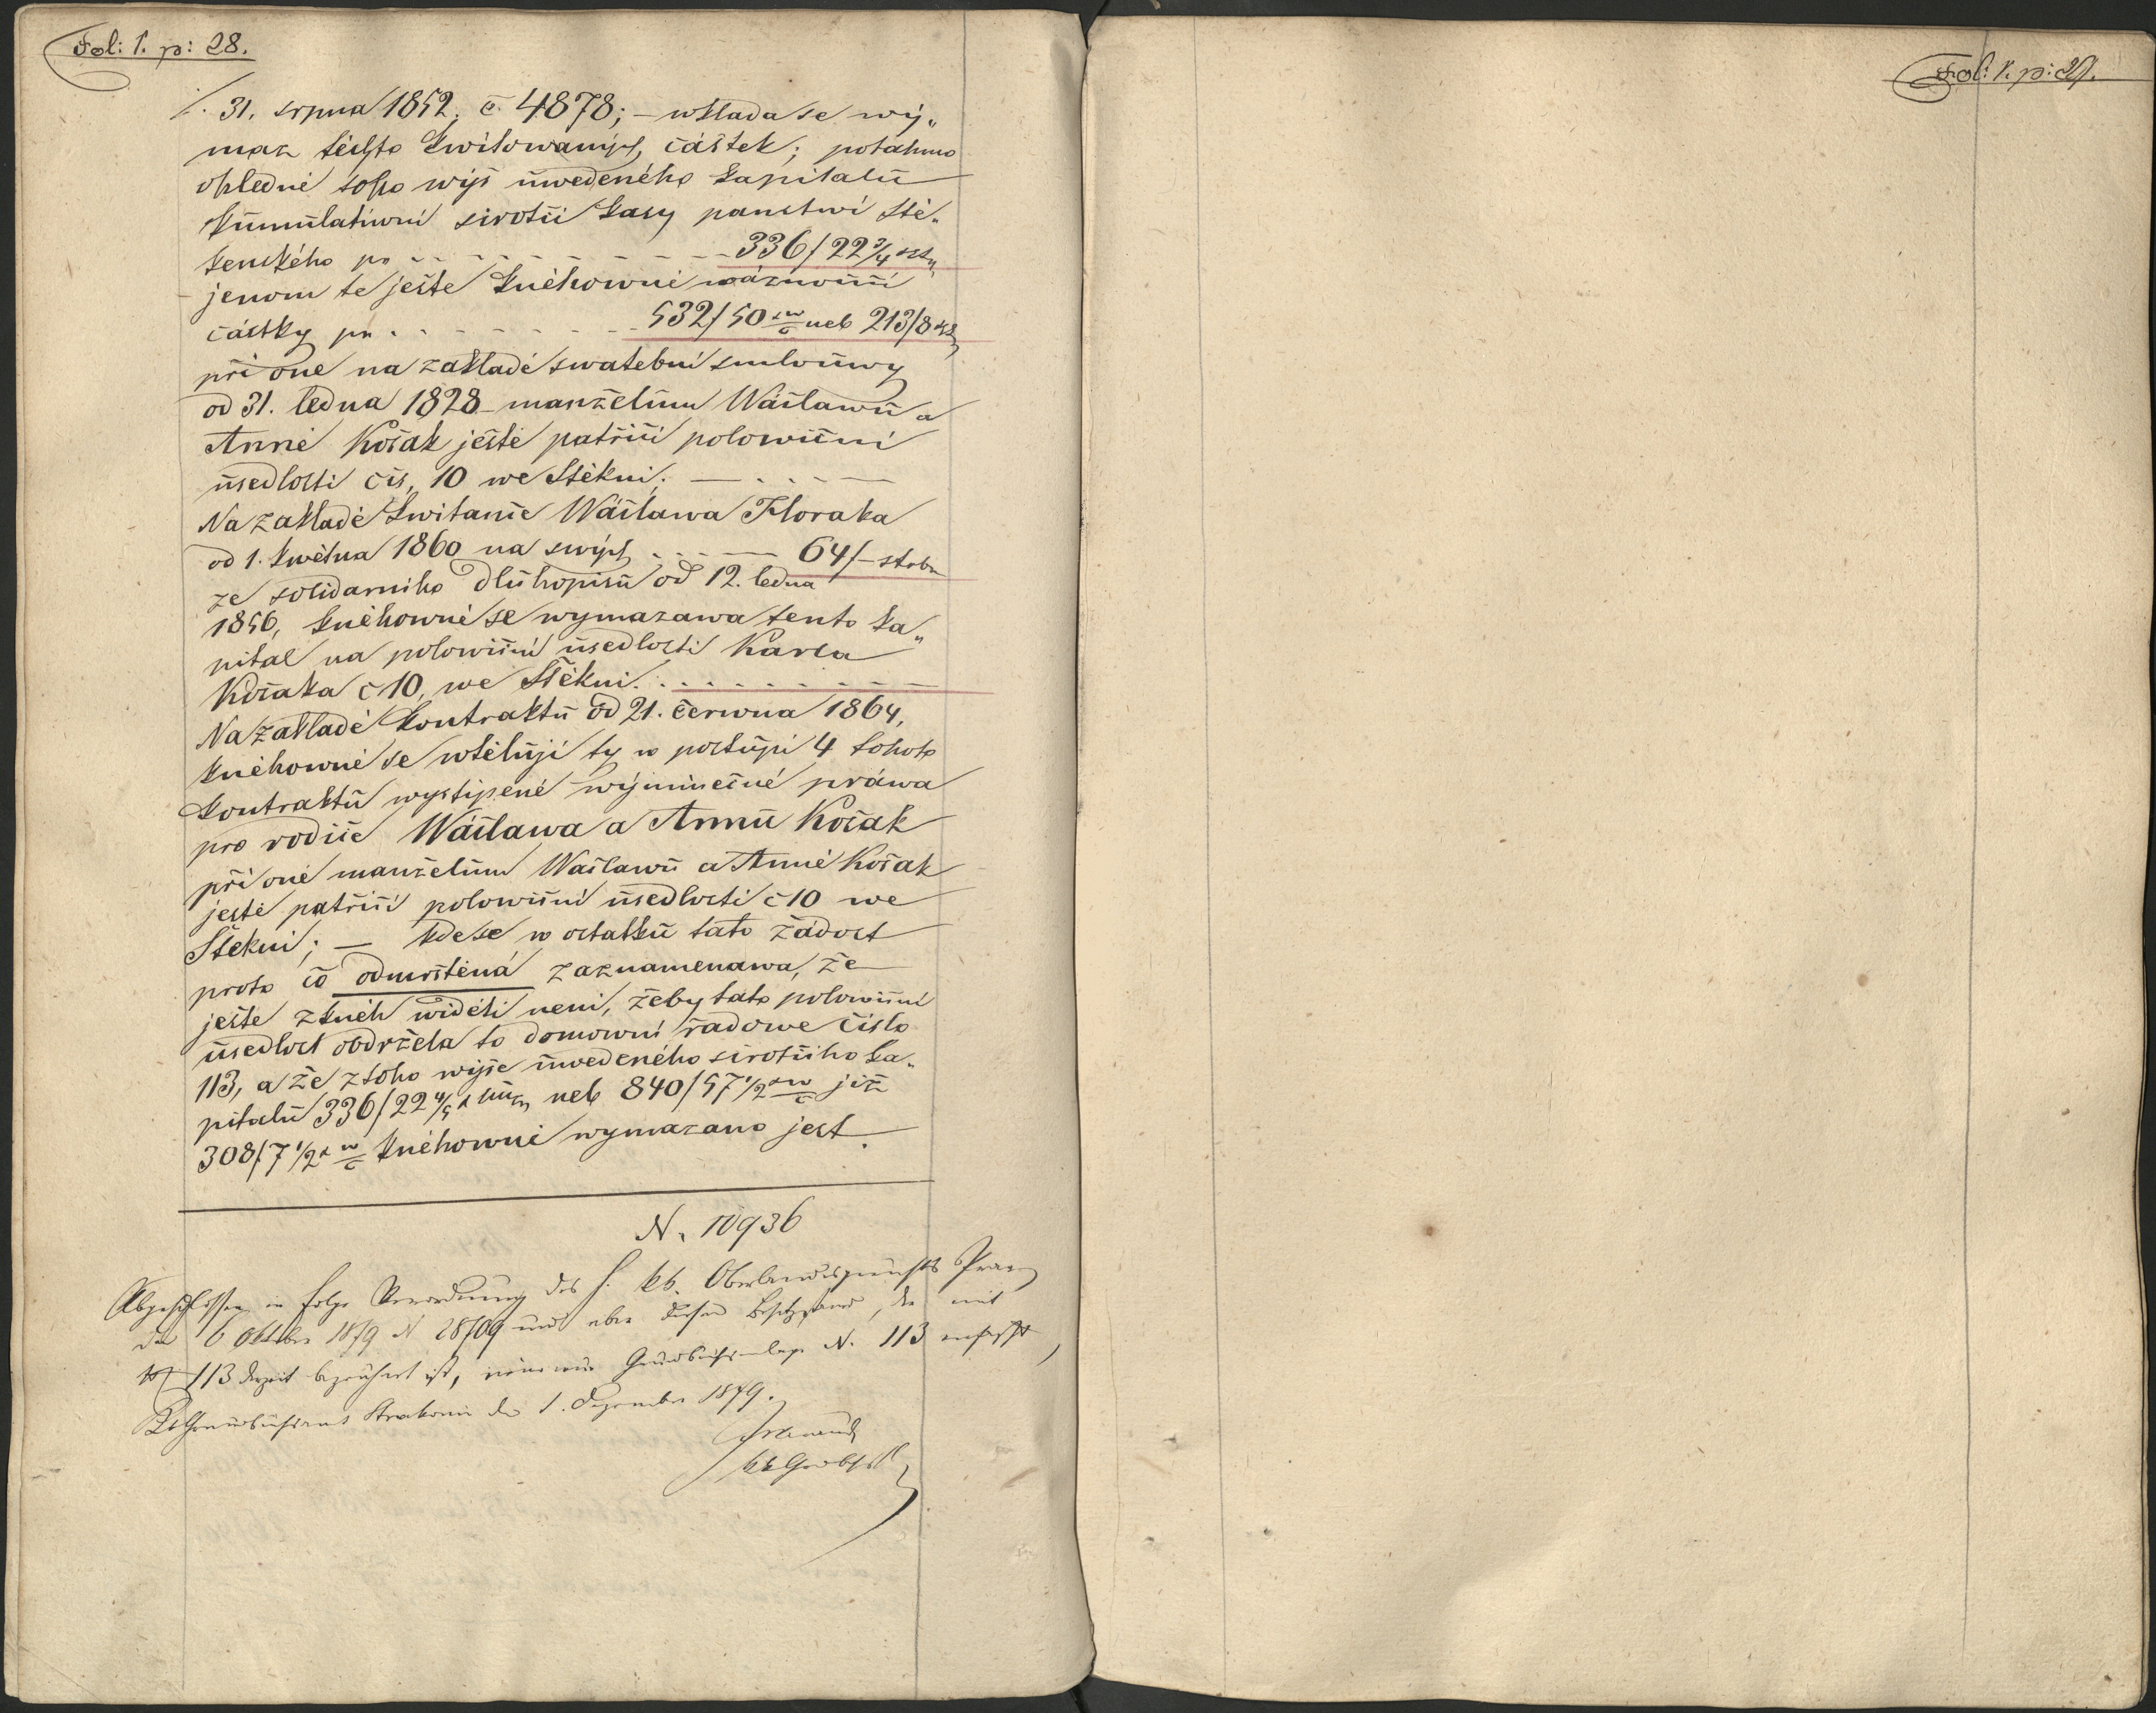 Fol: 1. p: 28.
./. 31. srpna 1852. č. 4878; – wkladá se wý„
maz těchto kwitowaných částek; potahmo
ohledně toho wýš uwedeného kapitalu
kumulatiwní sirotčí kasy panstwí Ště„
kenského pr 336/22 3/4
jenom te ještě kněhowně wáznouíí
částky pr 532/50 neb 213/8
při oné na zakladě swatební smlouwy
od 31. ledna 1828 manželům Wáclawu a
Anně Kočak ještě patřící polowiční
usedlosti čís, 10 we Stěkni.
Na zakladě kwitance Wáclawa Floraka
od 1. kwětna 1860 na swých 64/– strbr
ze solidarniho Dluhopisu od 12. ledna
1856, kněhowně se wymazawa tento ka„
pital na polowiční usedlosti Karla
Kočaka č 10, we Štěkni.
Na zakladě kontraktu od 21. června 1864,
kněhowně se wtělují ty w postupi 4 tohoto
kontraktu wystipené wýminečné práwa
pro rodiče Wáclawa a Annu Kočak
při oné manželům Waclawu a Anně Kočak
ještě patřící polowiční usedlosti č 10 we
Štekni; — kdese w ostatku tato žádost
proto co odmrštěná zaznamenawa, že
ješte z kněh widěti neni, žeby tato polowiční
usedlost obdržela to domowní řadowe číslo
113, a že z toho wýše uwedeného sirotčiho ka„
pitalu 336/22 4/5 neb 840/57 1/2 již
308/7 1/2 kněhowně wymazano jest.
N. 10936
Abgeschlossen in Folge Verordnung des h. kk. Oberlandesgerichts Prag
den 6 Oktober 1879 N 28709 und über diesen Besitzstand, der mit
113 derzeit bezeichnet ist, neue Grundbuchseinlage N. 113 verfasst,
KkGrundbuchsamt Strakonic den 1. Dezember 1879.
Fol: 1. p: 29.